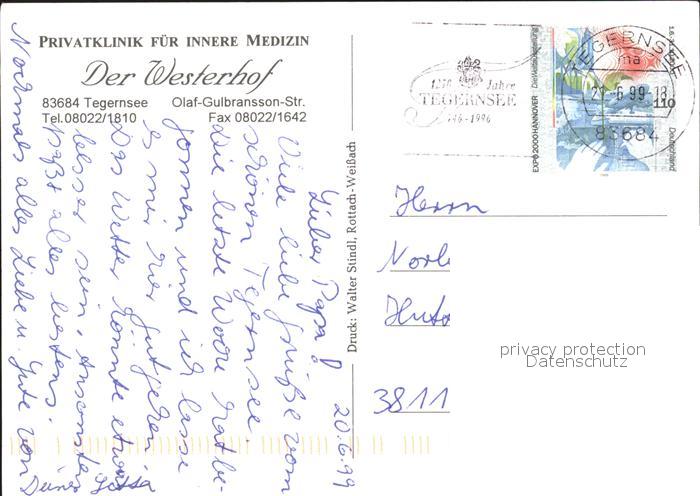 PRIVATKLINIK FÜR INNERE MEDIZIN
Der Westerhof
83684 Tegernsee Olaf-Gulbransson-Str.
Tel.08022/1810 Fax 08022/1642
20.6.99
Lieber Papa!
Viele liebe Grüße vom
schönen Tegernsee.
Die letzte Woche hat be-
gonnen und ich lasse
es mir hier gutgehen.
Das Wetter könnte etwas
besser sein. Ansonsten
paßt alles bestens.
Nochmals alles Liebe u. Gute von
Deiner
Druck: Walter Stindl, Rottach-Weißach
1250 Jahre
TEGERNSEE
746-1996
EXPO 2000 HANNOVER · Die Weltausstellung
110
Deutschland
TEGERNSEE
ma
-6.99-18
83684
Herrn
Norb
Huto
3811
privacy protection
Datenschutz